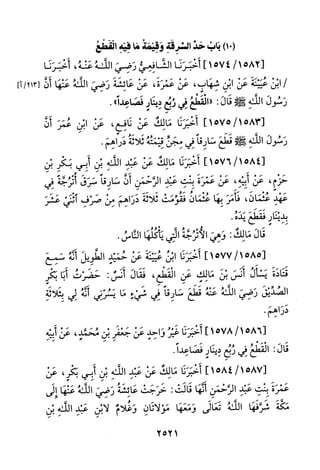 (١٠) بَابُ حَدِّ السَّرِقَةِ وَقِيمَةُ مَا فِيهِ القَطْعُ
[١٥٧٤/١٥٨٢] أَخْبَرَنَا الشَّافِعِيُّ رَضِيَ اللَّهُ عَنْهُ، أَخْبَرَنَا
/ابْنُ عُيَيْنَةَ عَنْ ابْنِ شِهَابٍ، عَنْ عَمْرَةَ، عَنْ عَائِشَةَ رَضِيَ اللَّهُ عَنْهَا أَنَّ [٢١٣/أ]
رَسُولَ اللَّهِ ﷺ قَالَ: «القَطْعُ فِي رُبْعِ دِينَارٍ فَصَاعِداً».
[١٥٧٥/١٥٨٣] أَخْبَرَنَا مَالِكٌ عَنْ نَافِعٍ، عَنِ ابْنِ عُمَرَ أَنَّ
رَسُولَ اللَّهِ ﷺ قَطَعَ سَارِقاً فِي مِجَنٍّ قِيمَتُهُ ثَلَاثَةُ دَرَاهِمَ.
[١٥٧٦/١٥٨٤] أَخْبَرَنَا مَالِكٌ عَنْ عَبْدِ اللَّهِ بْنِ أَبِي بَكْرِ بْنِ
حَزْمٍ، عَنْ أَبِيهِ، عَنْ عَمْرَةَ بِنْتِ عَبْدِ الرَّحْمَنِ أَنَّ سَارِقاً سَرَقَ أُتْرُجَّةً فِي
عَهْدِ عُثْمَانَ، فَأَمَرَ بِهَا عُثْمَانُ فَقُوِّمَتْ ثَلَاثَةَ دَرَاهِمَ مِنْ صَرْفِ اثْنَيْ عَشَرَ
بِدِينَارٍ فَقَطَعَ يَدَهُ.
قَالَ مَالِكٌ: وَهِيَ الأُتْرُجَّةُ الَّتِي يَأْكُلُهَا النَّاسُ.
[١٥٧٧/١٥٨٥] أَخْبَرَنَا ابْنُ عُيَيْنَةَ عَنْ حُمَيْدٍ الطَّوِيلِ أَنَّهُ سَمِعَ
قَتَادَةَ يَسْأَلُ أَنَسَ بْنَ مَالِكٍ عَنِ القَطْعِ، فَقَالَ أَنَسٌ: حَضَرْتُ أَبَا بَكْرٍ
الصِّدِّيقَ رَضِيَ اللَّهُ عَنْهُ قَطَعَ سَارِقاً فِي شَيْءٍ مَا يَسُرُّنِي أَنَّهُ لِي بِثَلَاثَةِ
دَرَاهِمَ.
[١٥٧٨/١٥٨٦] أَخْبَرَنَا غَيْرُ وَاحِدٍ عَنْ جَعْفَرِ بْنِ مُحَمَّدٍ، عَنْ أَبِيهِ
قَالَ: القَطْعُ فِي رُبْعِ دِينَارٍ فَصَاعِداً.
[١٥٨٤/١٥٨٧] أَخْبَرَنَا مَالِكٌ عَنْ عَبْدِ اللَّهِ بْنِ أَبِي بَكْرٍ، عَنْ
عَمْرَةَ بِنْتِ عَبْدِ الرَّحْمَنِ أَنَّهَا قَالَتْ: خَرَجَتْ عَائِشَةُ رَضِيَ اللَّهُ عَنْهَا إِلَى
مَكَّةَ شَرَّفَهَا اللَّهُ تَعَالَى وَمَعَهَا مَوْلَاتَانِ وَغُلَامٌ لِابْنِ عَبْدِ اللَّهِ بْنِ
٢٥٢١